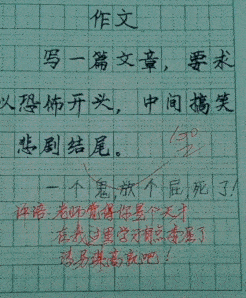 作文
写一篇文章，要求
以恐怖开头，中间搞笑
悲剧结尾。
一个鬼放个屁，死了！
评语：老师觉得你是个天才
在我这里学习有点委屈了
请另谋高就吧！